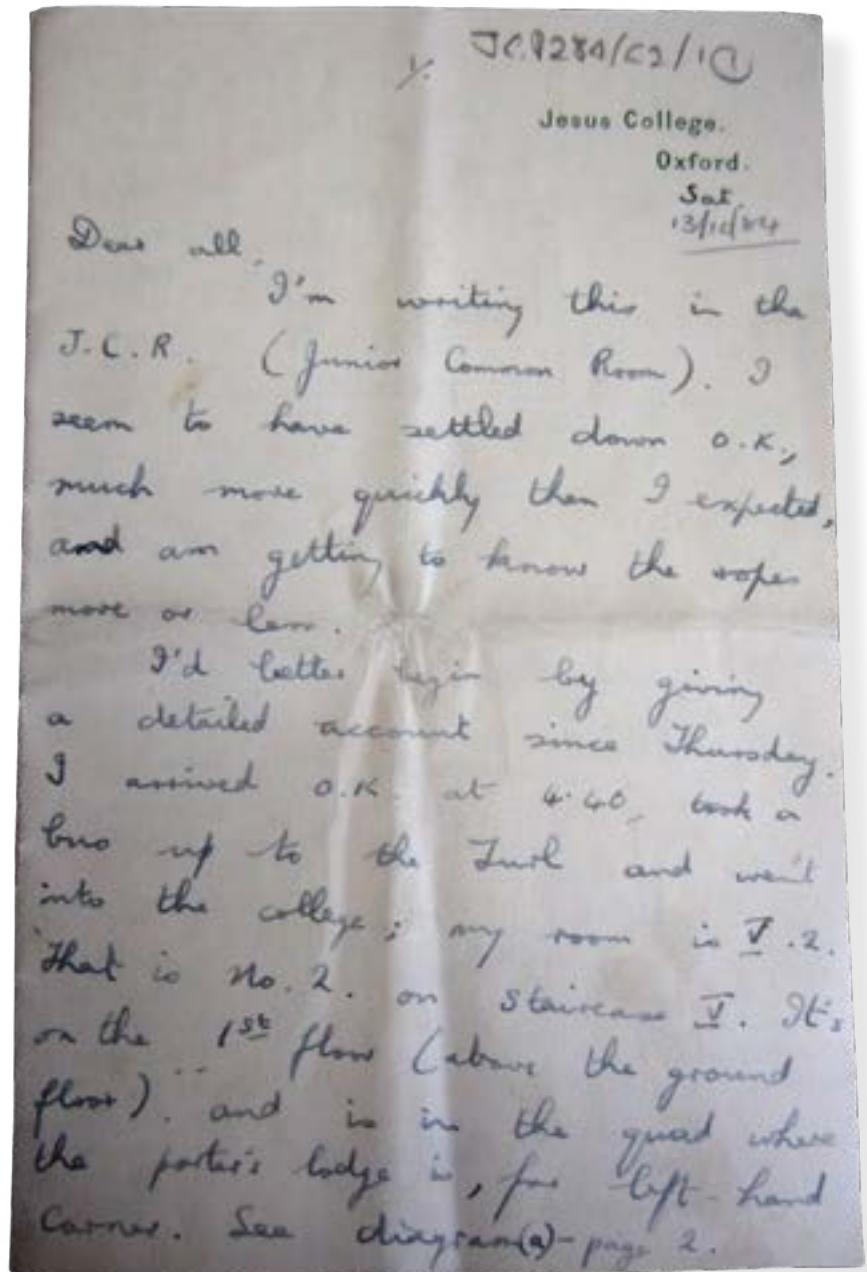 1/. JC:P284/C2/1 ①
Jesus College.
Oxford.
Sat.
Dear all,
I'm writing this in the
J.C.R. (Junior Common Room). I
seem to have settled down O.K.,
much more quickly than I expected,
and am getting to know the ropes
more or less.
I'd better begin by giving
a detailed account since Thursday.
I arrived O.K. at 4.40, took a
bus up to the Turl and went
into the college; my room is V.2.
That is No. 2. on staircase V. It's
on the 1st floor (above the ground
floor). and is in the quad where
the porter's lodge is, far left-hand
corner. See diagram(a) - page 2.